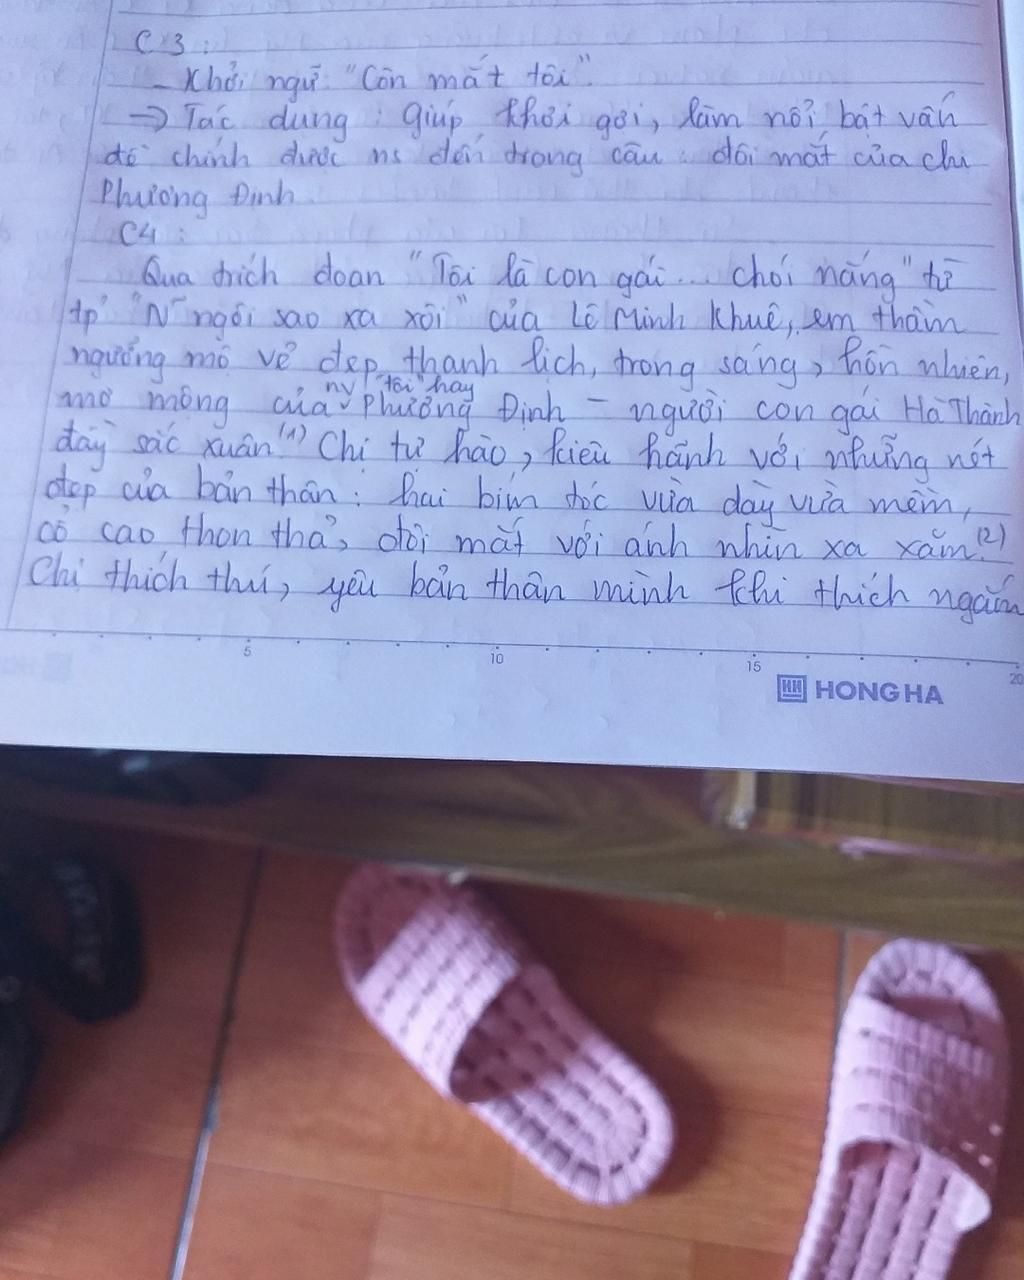 C3:
- Khởi ngữ: "Còn mắt tôi".
→ Tác dụng: Giúp khơi gợi, làm nổi bật vấn
đề chính được ns đến trong câu: đôi mắt của chị
Phương Định.
C4:
Qua trích đoạn "Tôi là con gái... chói nắng" từ
tp "N~ ngôi sao xa xôi" của Lê Minh Khuê, em thầm
ngưỡng mộ vẻ đẹp thanh lịch, trong sáng, hồn nhiên,
nv "tôi" hay
mơ mộng của Phương Định - người con gái Hà Thành
đầy sắc xuân.(1) Chị tự hào, kiêu hãnh với những nét
đẹp của bản thân: hai bím tóc vừa dày vừa mềm,
cổ cao thon thả, đôi mắt với ánh nhìn xa xăm.(2)
Chị thích thú, yêu bản thân mình khi thích ngắm
5 10 15 20
HH HONG HA